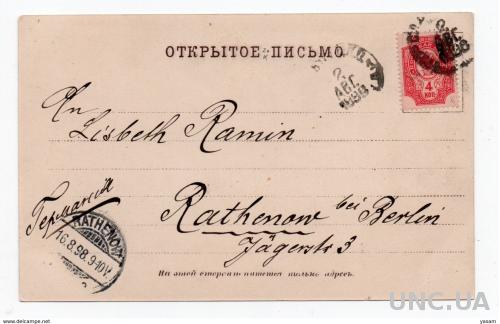 ОТКРЫТОЕ ПИСЬМО
2
АВГ.
1898
АВГ
1898
4
КОП.
An
Lisbeth Ramin
Германия
Rathenow bei Berlin
Jägerstr 3
RATHENOW
16.8.98. 9-10V.
На этой сторонѣ пишется только адресъ.
UNC.UA
www.delcampe.net
yesam